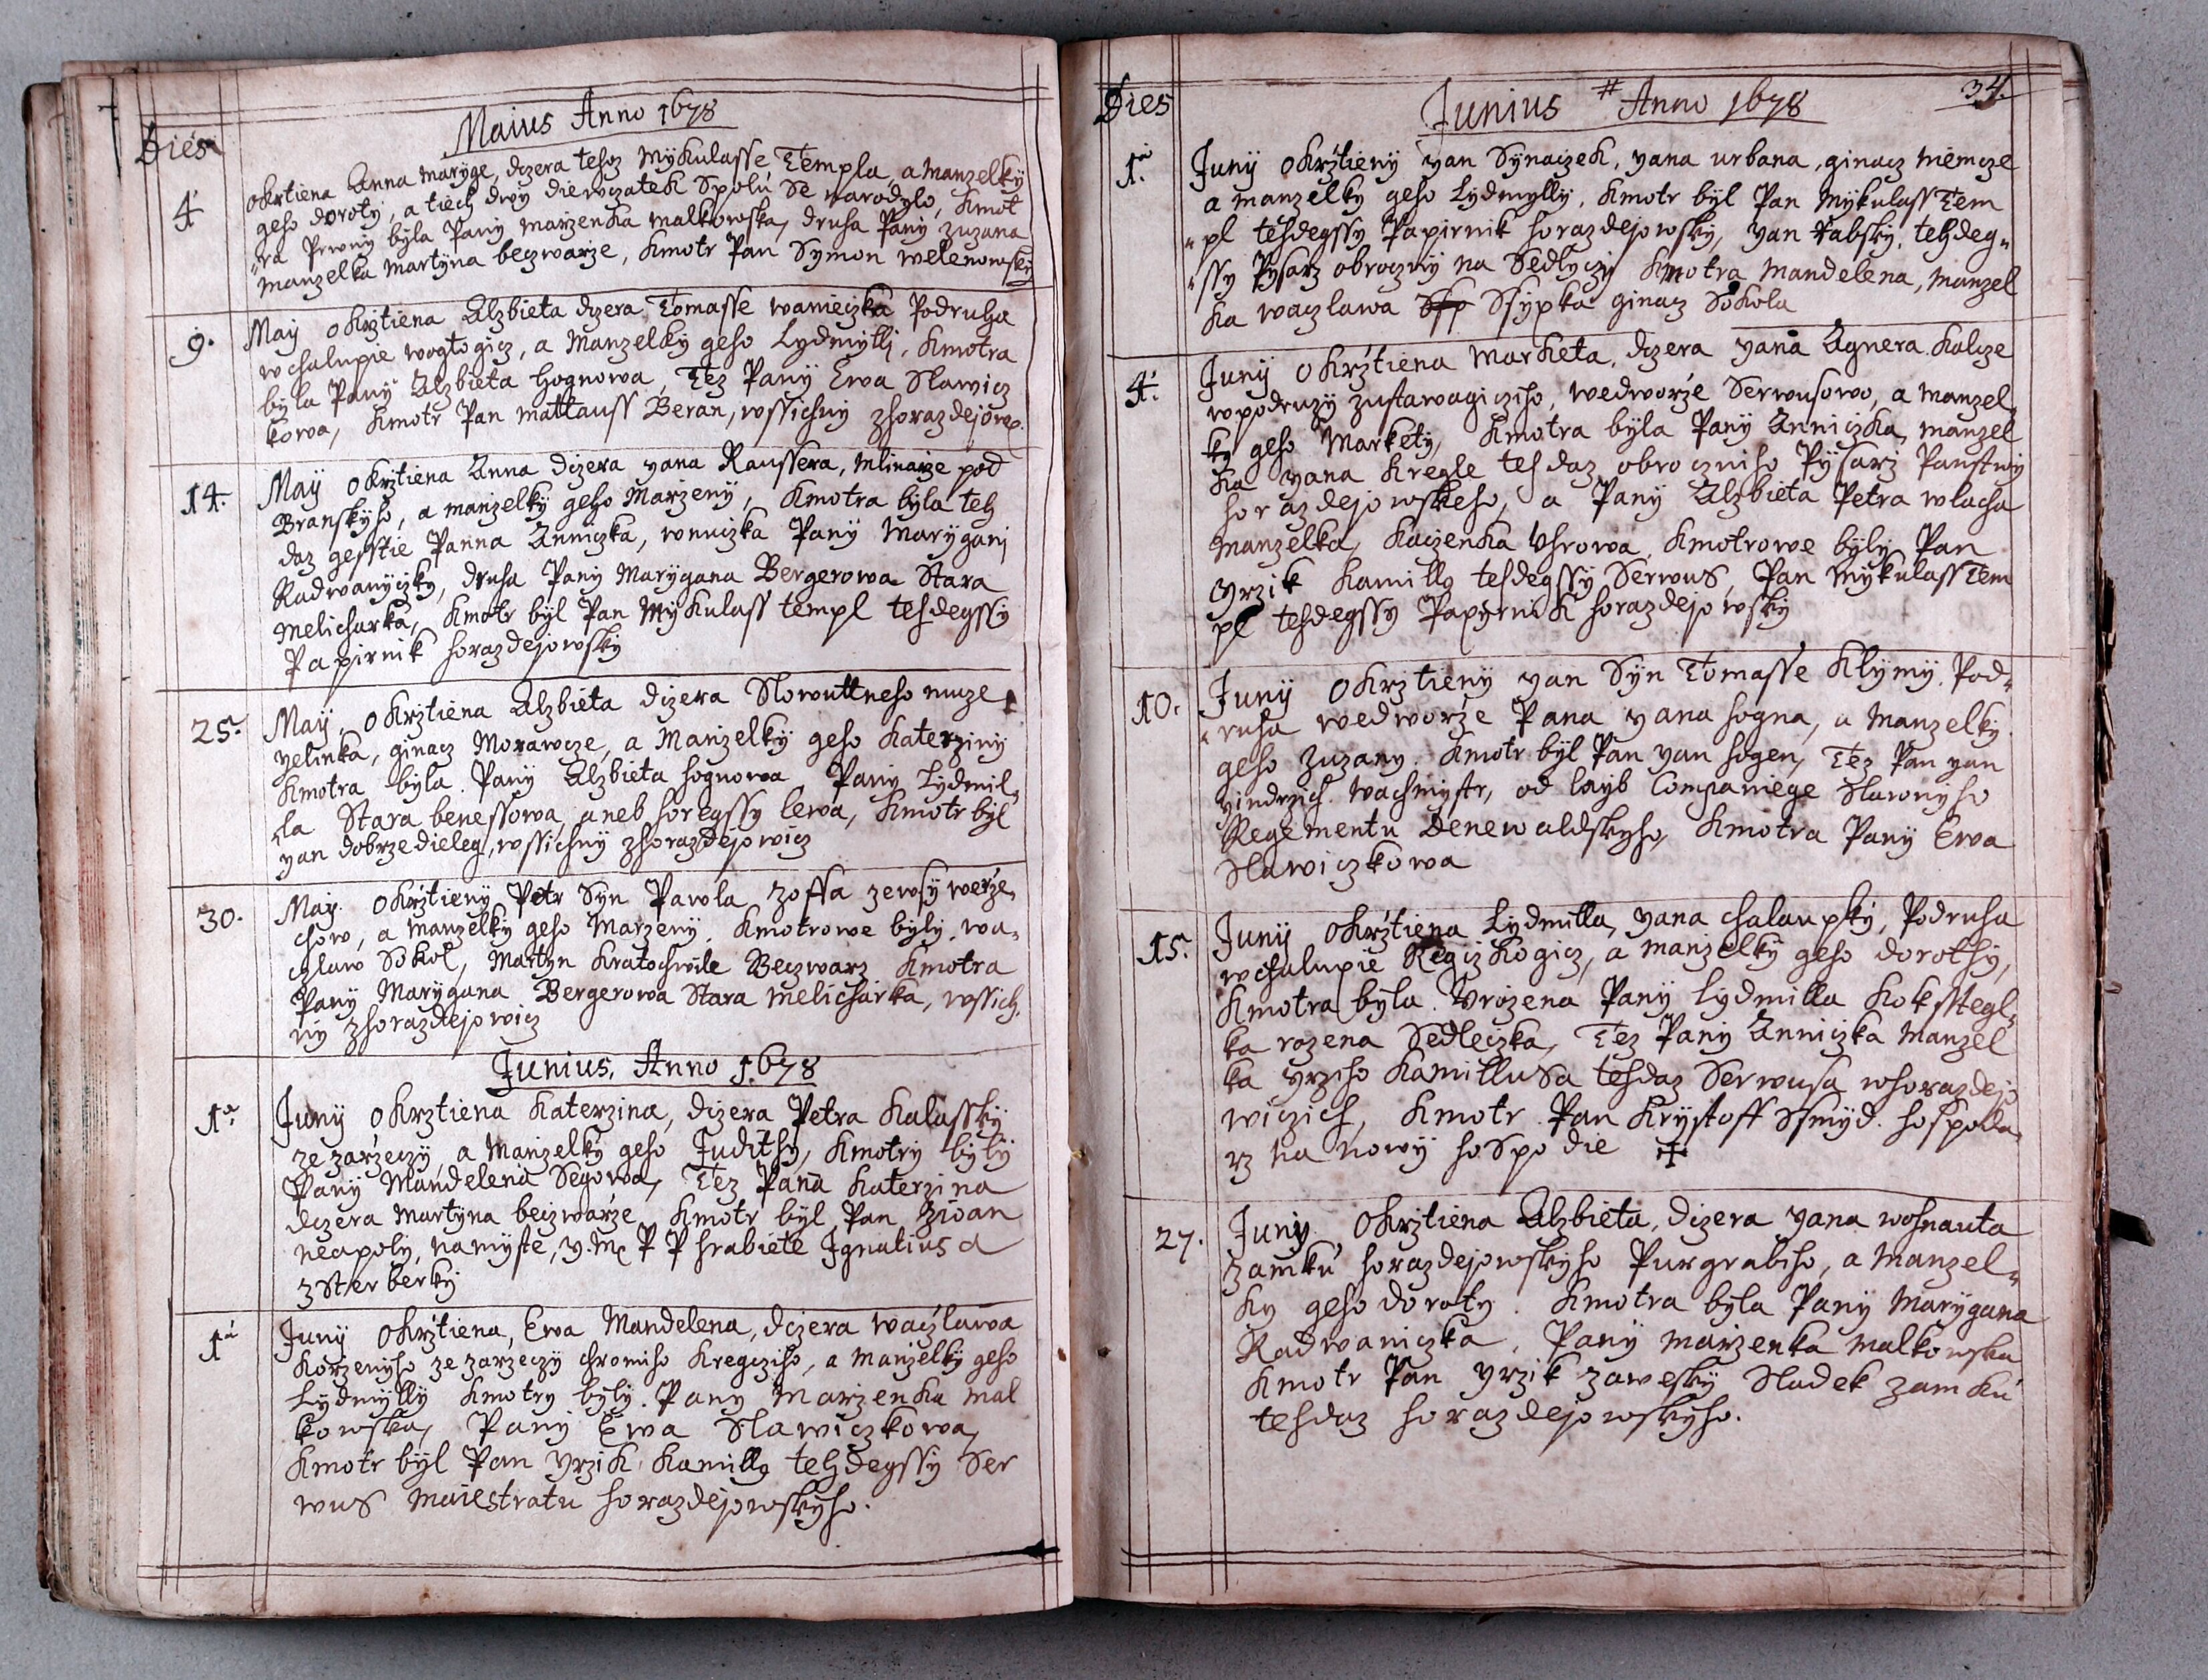 Maius Anno 1678
Dies
4 okrtiena Anna maryge, dczera tehoz Mykulasse Templa, a manzelky
geho doroty, a tiech dwy diewczatek Spolu Se narodylo, Kmot
"ra Prwny byla Pany marzenka malkowska, druha Pany zuzana
manzelka martyna beczwarze, Kmotr Pan Symon welenowsky
9. May okrztiena Alzbieta dczera Tomasse wanieczka Podruha
w chalupie wogtogicz, a Manzelky geho Lydmylly, Kmotra
byla Pany Alzbieta hognowa, Tez Pany Ewa Slawicz
kowa, Kmotr Pan mattauss Beran, wssichny zhorazdejowicz
14. May okrztiena Anna dczera yana Raussera, mlinarze pod
Branskyho, a manzelky geho Marzeny, Kmotra byla teh
daz gesstie Panna Anniczka, wnuczka Pany Marygani
Radwanyczky, druha Pany Marygana Bergerowa Stara
Melicharka, Kmotr byl Pan Mykulass templ tehdegssy
Papirnik horazdejowsky
25. May, okrztiena Alzbieta dczera Slowuttneho muze
yelinka, ginacz Morawcze, a Manzelky geho Katerziny
Kmotra byla Pany Alzbieta hognowa Pany Lydmil,
"la Stara benessowa, aneb horegssy lewa, Kmotr byl
yan dobrzedieleg, wssichny zhorazdejowicz
30. May. okrztieny Petr Syn Pawla zoffa zewsy werze,
chow, a manzelky geho Marzeny. Kmotrowe byly, wa,
czlaw Sokol, Martyn Kratochwile Beczwarz Kmotra
Pany Marygana Bergerowa Stara melicharka, wssich,
ny zhorazdejowicz
Junius, Anno 1678
1a Juny okrztiena Katerzina, dczera Petra Kalassky
ze zarzeczy, a Manzelky geho Judithy, Kmotry byly
Pany Mandelena Segowa, Tez Pana Katerzina
dczera Martyna beczwarze Kmotr byl Pan
neapoly, na myste, y. Mc P P hrabiete Ignatius a
z Sterberky
1a Juny okrztiena, Ewa Mandelena, dczera waczlawa
Korzenyho ze zarzeczy chromiho Kregcziho, a Manzelky geho
Lydmylly Kmotry byly. Pany Marzenka mal
kowska, Pany Ewa Slawiczkowa,
Kmotr byl Pan yrzik Kamill9 tehdegssy Ser
wus maiestratu horazdejowskyho.
Dies
Junius # Anno 1678
34.
1a. Juny okrztieny yan Synaczek, yana urbana, ginacz niemcze
a manzelky geho Lydmylly, Kmotr byl Pan Mykulass Tem
"pl tehdegssy Papirnik horazdejowsky, yan rabsky, tehdeg"
"ssy Pysarz obroczny na Sedlyczy Kmotra Mandelena, manzel
ka waczlawa Ssp Ssypka ginacz Sokola
4. Juny okrztiena Marketa, dczera yana Agnera Kalcze
wpodruzy zustawagicziho, wedworze Serwusowo, a manzel,
ky geho Markety, Kmotra byla Pany Anniczka, manzel
ka yana Kregle tehdaz obrocziniho Pysarz Panstwy
horazdejowskeho, a Pany Alzbieta Petra wlacha
manzelka, Kaczenka Uhrowa, Kmotrowe byly Pan
yrzik Kamill9 tehdegssy Serwus, Pan Mykulass Tem
pl tehdegssy Papyrnik horazdejowsky
10. Juny okrztieny yan Syn Tomasse Klymy, Pod"
"ruha wedworze Pana yana hogna, a Manzelky
geho zuzany. Kmotr byl Pan yan hogen, Tez Pan yan
yindrzich Wachmystr, od layb Companiege Slawnyho
Regementu Denewaldskyho, Kmotra Pany Ewa
Slawiczkowa
15. Juny okrztiena Lydmilla, yana chalaupky, Podruha
w chalupie Regizkogicz, a manzelky geho dorothy,
Kmotra byla. Urozena Pany Lydmilla Koksstegl"
ka rozena Sedleczka, Tez Pany Anniczka Manzel
ka yrziho Kamillusa tehdaz Serwusa whorazdejo
wiczich, Kmotr Pan Krystoff Ssmyd. hospoda"
rz na nowy hospodie ‡
27. Juny, okrztiena Alzbieta, dczera yana wohnauta
zamku horazdejowskyho Purgrabiho, a Manzel"
ky geho doroty. Kmotra byla Pany Marygana
Radwaniczka, Pany marzenka malkowska
Kmotr Pan yrzik zawesky Sladek zamku
tehdaz horazdejowskyho.